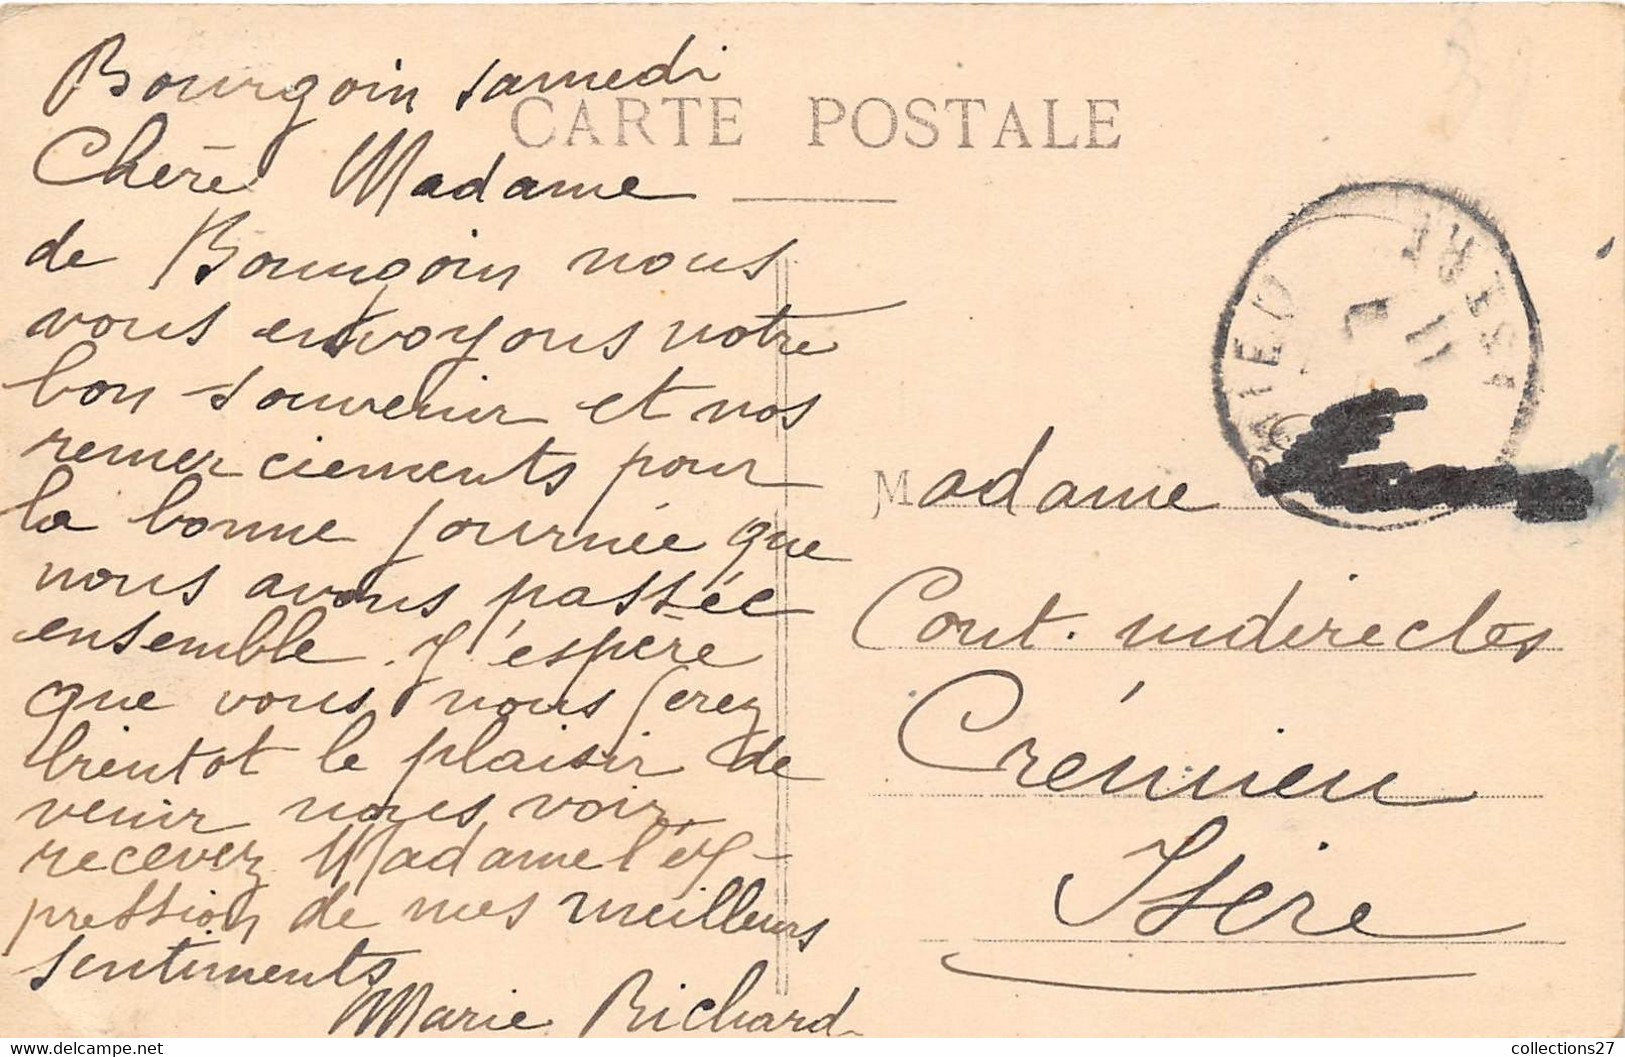 CARTE POSTALE
Bourgoin samedi
Chère Madame
de Bourgoin nous
vous envoyons notre
bon souvenir et nos
remerciements pour
la bonne journée que
nous avons passée
ensemble. J'espère
que vous nous ferez
bientot le plaisir de
venir nous voir
recevez Madame l'ex-
pression de mes meilleurs
sentiments
Marie Richard
ISERE
Madame
Cont. indirectes
Crémieu
Isère
collections27